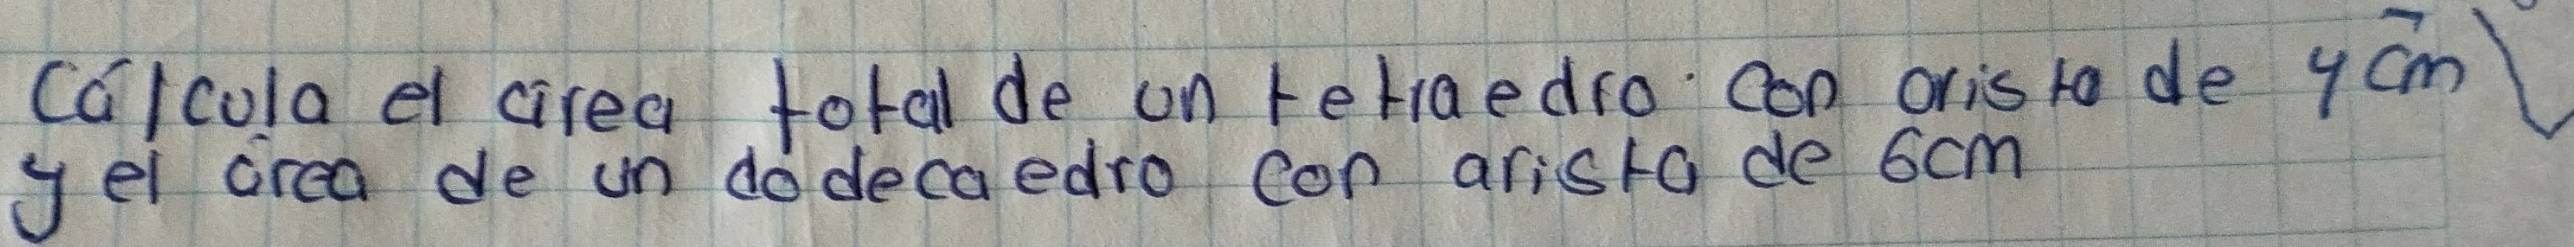 Cálcula el área total de un tetraedro con arista de 4cm
y el área de un dodecaedro con arista de 6cm